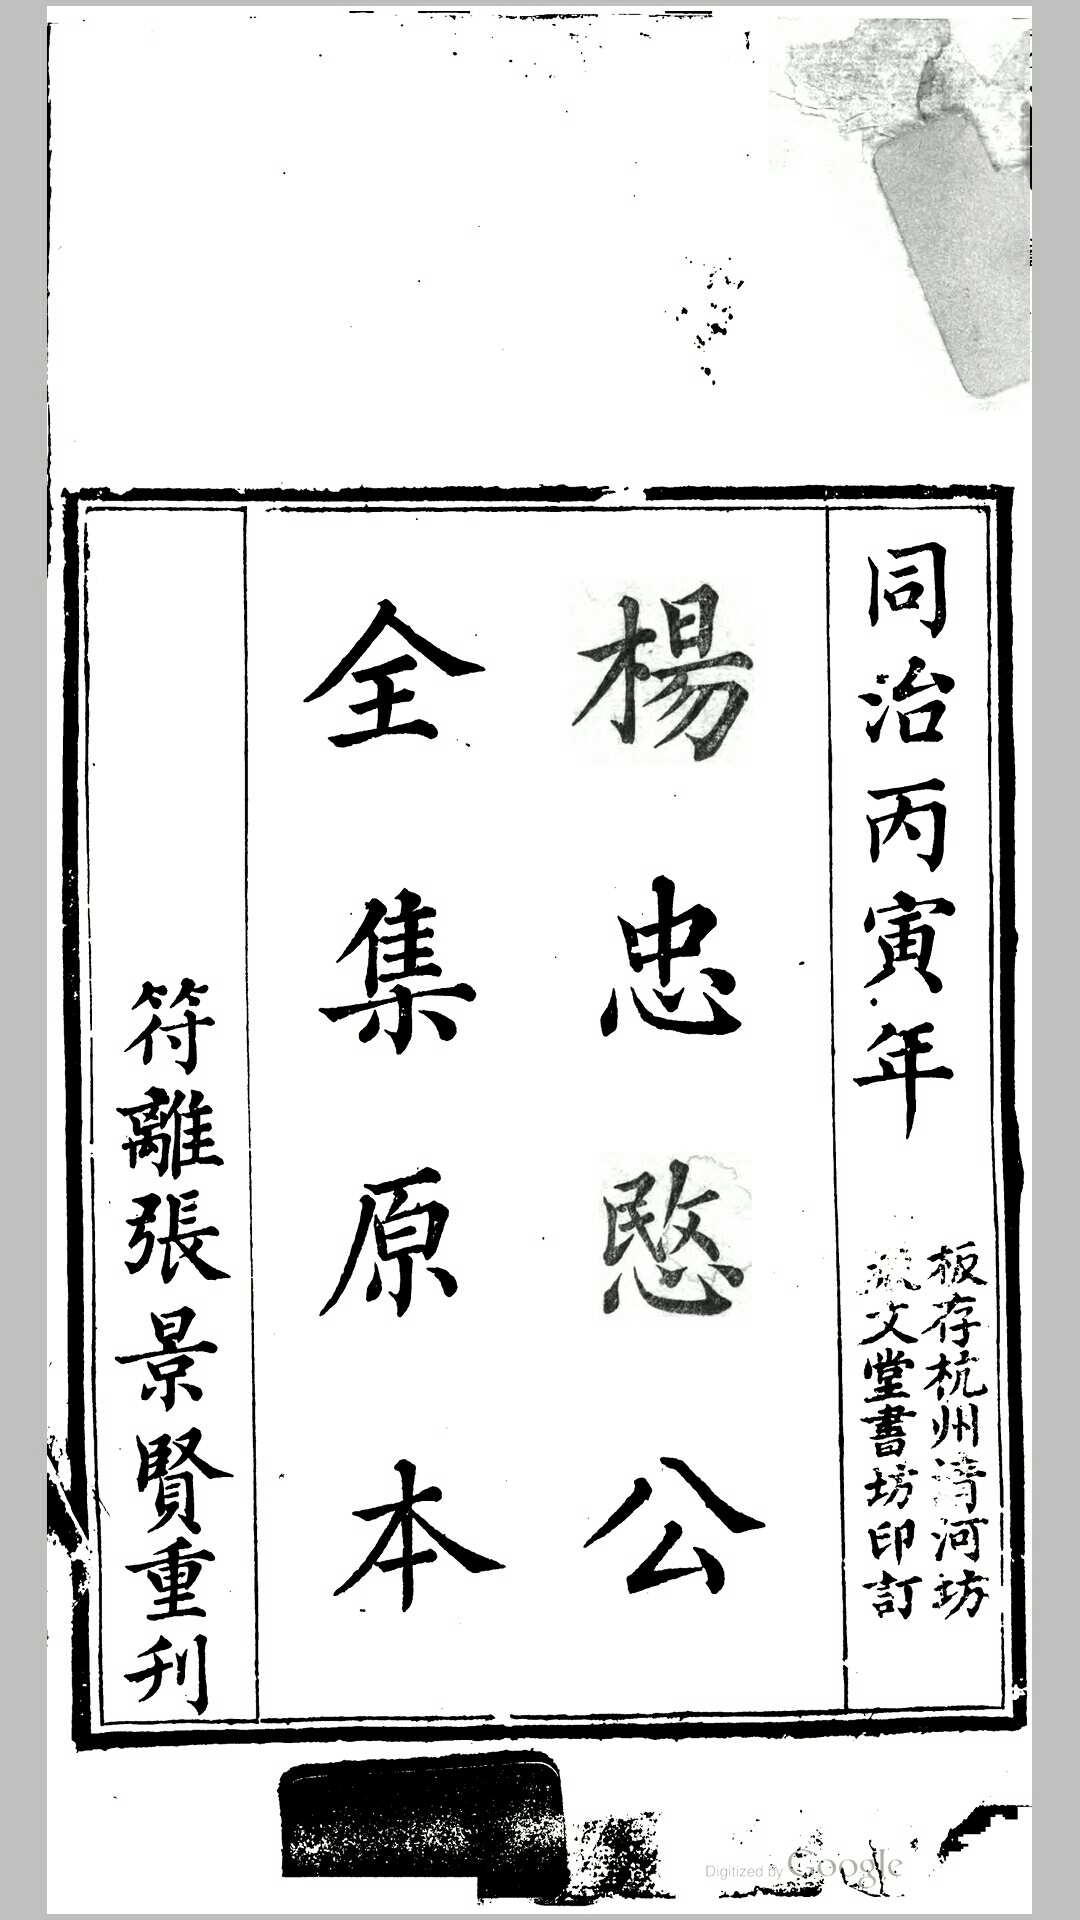 同治丙寅年
板存杭州清河坊
文堂書坊印訂
楊忠愍公
全集原本
符離張景賢重刊
Digitized by Google